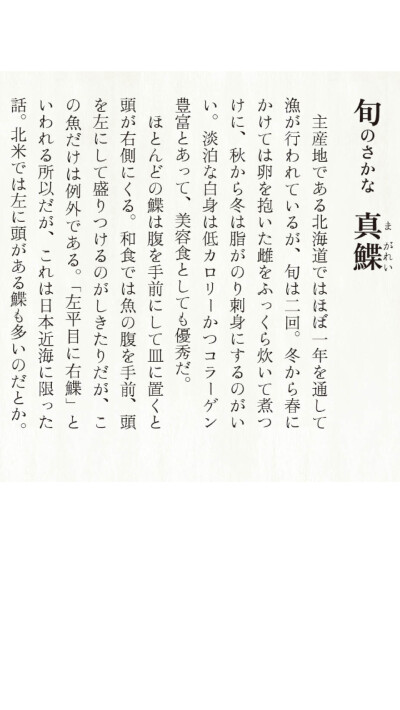 旬のさかな 真鰈
まがれい
主産地である北海道ではほぼ一年を通して
漁が行われているが、旬は二回。冬から春に
かけては卵を抱いた雌をふっくら炊いて煮つ
けに、秋から冬は脂がのり刺身にするのがい
い。淡泊な白身は低カロリーかつコラーゲン
豊富とあって、美容食としても優秀だ。
ほとんどの鰈は腹を手前にして皿に置くと
頭が右側にくる。和食では魚の腹を手前、頭
を左にして盛りつけるのがしきたりだが、こ
の魚だけは例外である。「左平目に右鰈」と
いわれる所以だが、これは日本近海に限った
話。北米では左に頭がある鰈も多いのだとか。